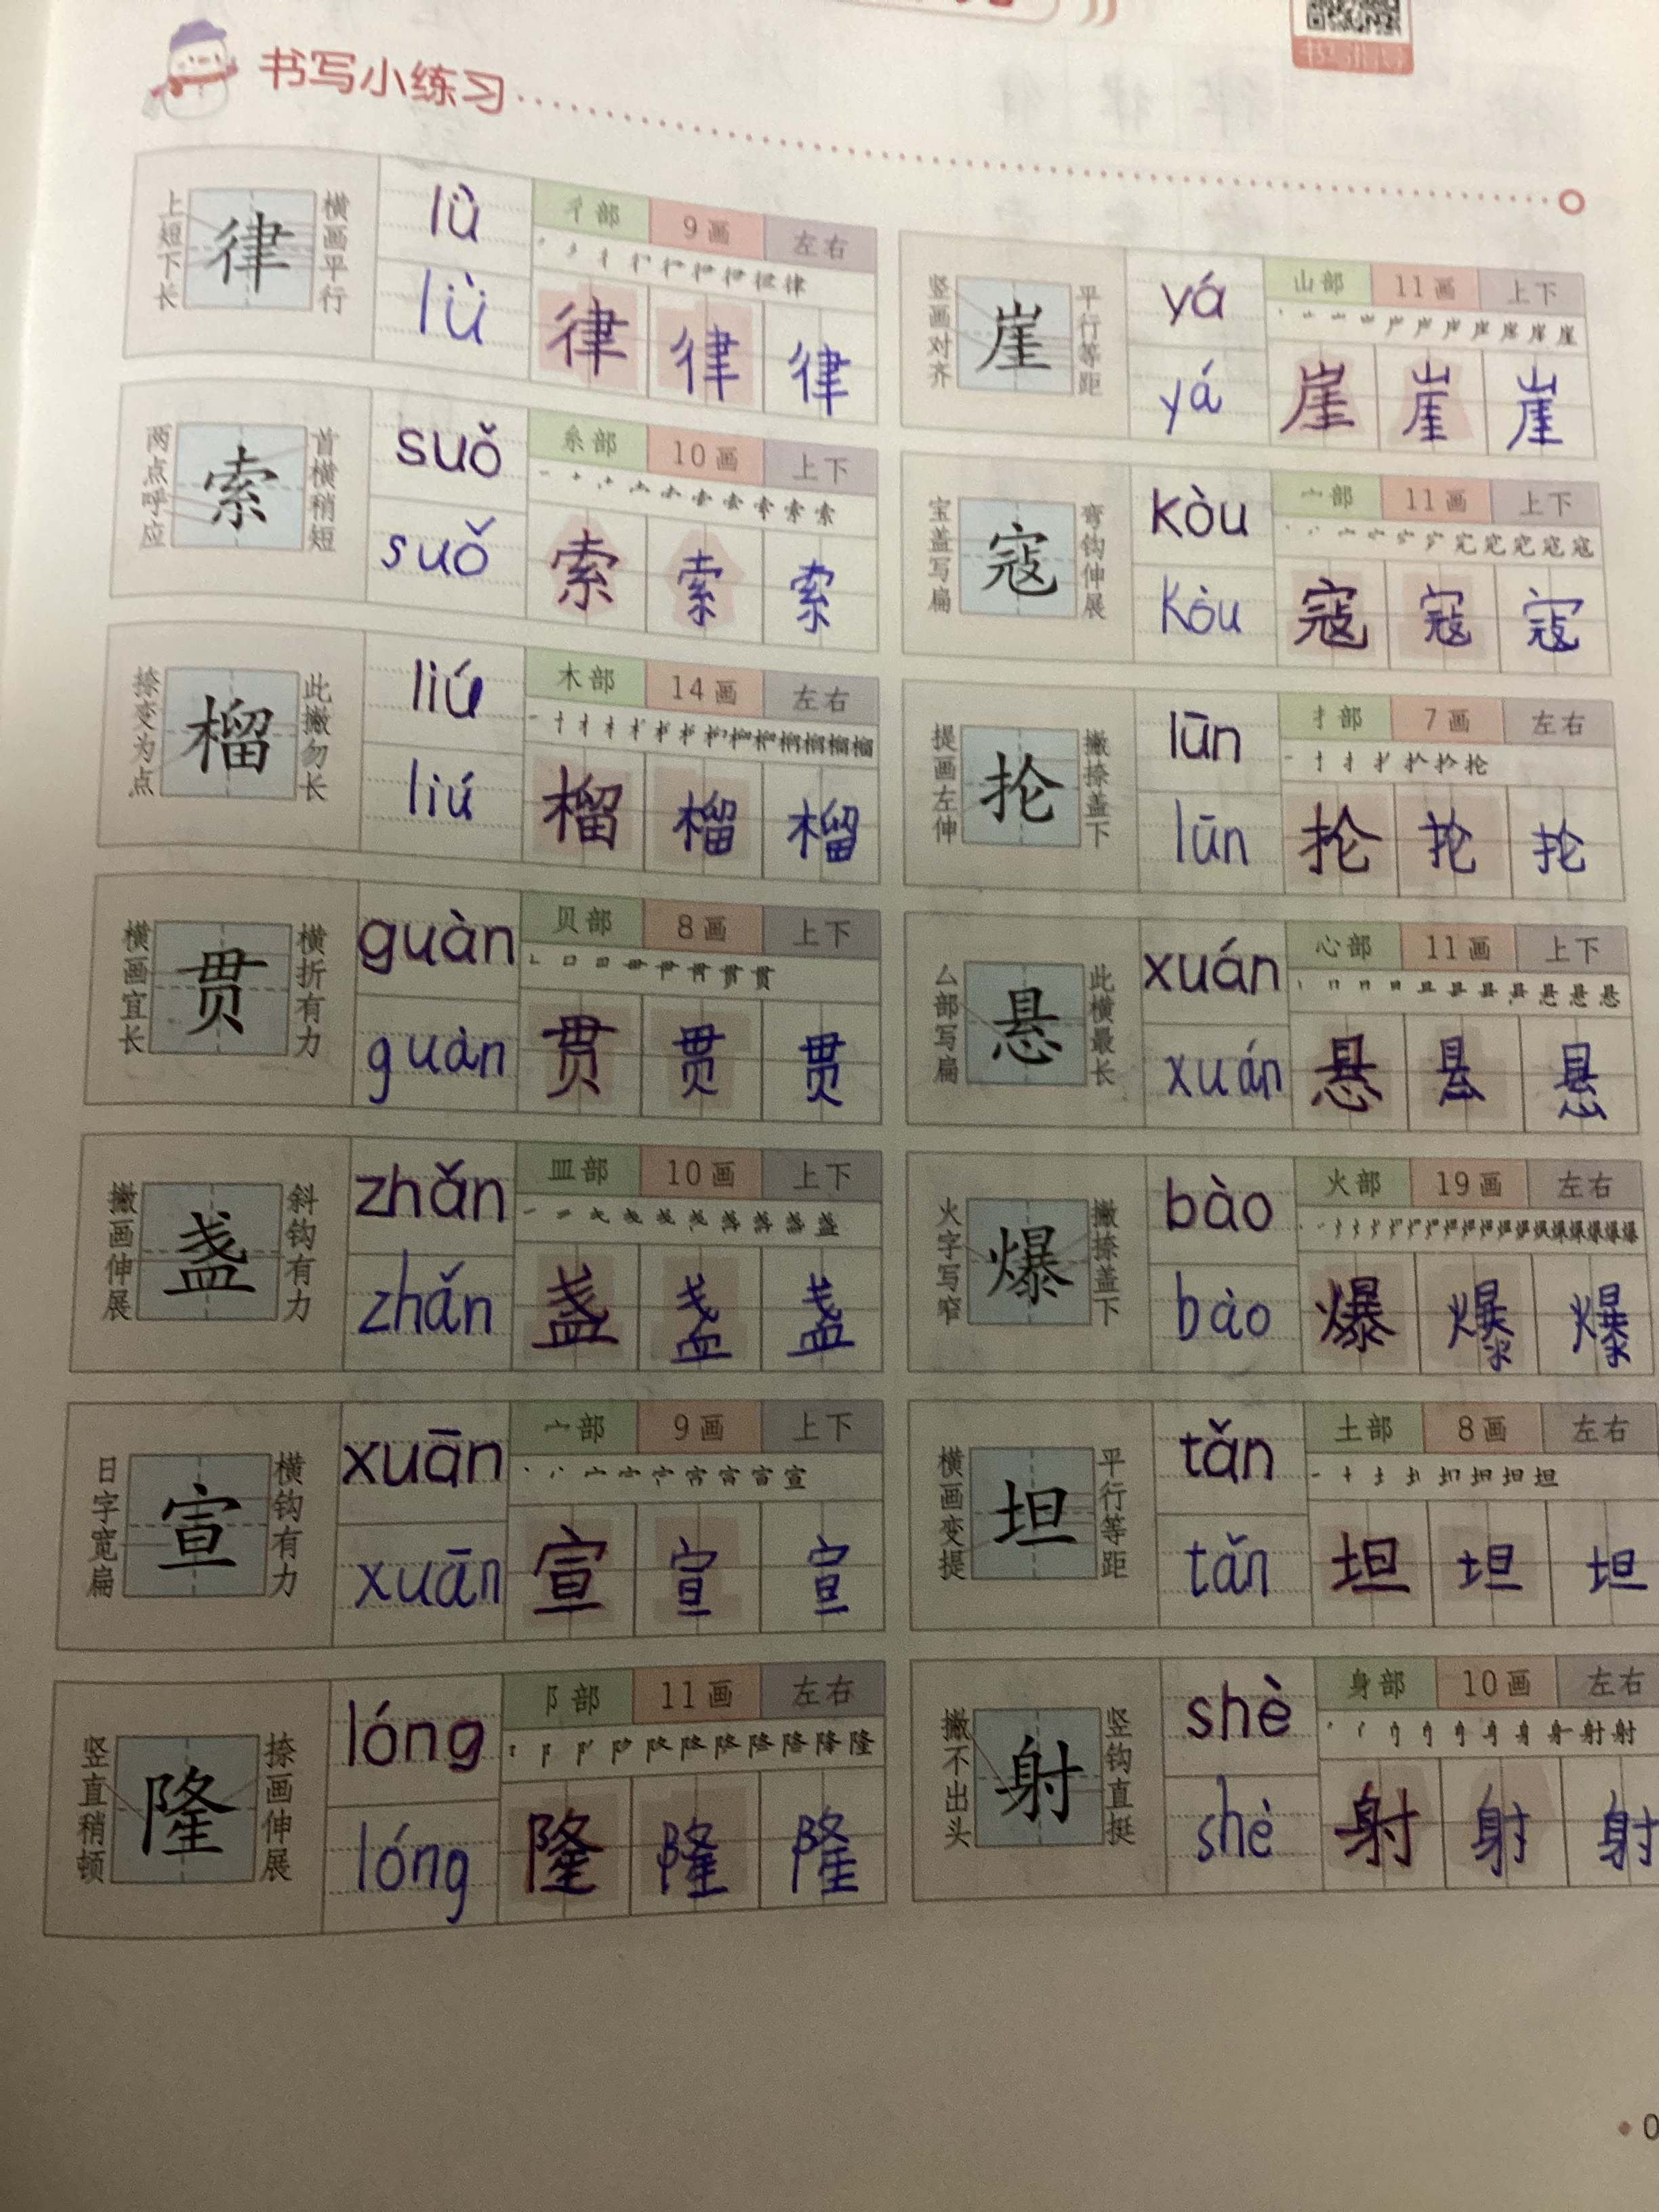 书写小练习
书写指导
上短下长 律 横画平行
lǜ
lǜ
彳部 9画 左右
律 律 律
竖画对齐 崖 平行等距
yá
yá
山部 11画 上下
崖 崖 崖
两点呼应 索 首横稍短
suǒ
suǒ
糸部 10画 上下
索 索 索
宝盖写扁 寇 弯钩伸展
kòu
kòu
宀部 11画 上下
寇 寇 寇
捺变为点 榴 此撇勿长
liú
liú
木部 14画 左右
榴 榴 榴
提画左伸 抡 撇捺盖下
lūn
lūn
扌部 7画 左右
抡 抡 抡
横画宜长 贯 横折有力
guàn
guàn
贝部 8画 上下
贯 贯 贯
厶部写扁 悬 此横最长
xuán
xuán
心部 11画 上下
悬 悬 悬
撇画伸展 盏 斜钩有力
zhǎn
zhǎn
皿部 10画 上下
盏 盏 盏
火字写窄 爆 撇捺盖下
bào
bào
火部 19画 左右
爆 爆 爆
日字宽扁 宣 横钩有力
xuān
xuān
宀部 9画 上下
宣 宣 宣
横画变提 坦 平行等距
tǎn
tǎn
土部 8画 左右
坦 坦 坦
竖直稍顿 隆 捺画伸展
lóng
lóng
阝部 11画 左右
隆 隆 隆
撇不出头 射 竖钩直挺
shè
shè
身部 10画 左右
射 射 射
0